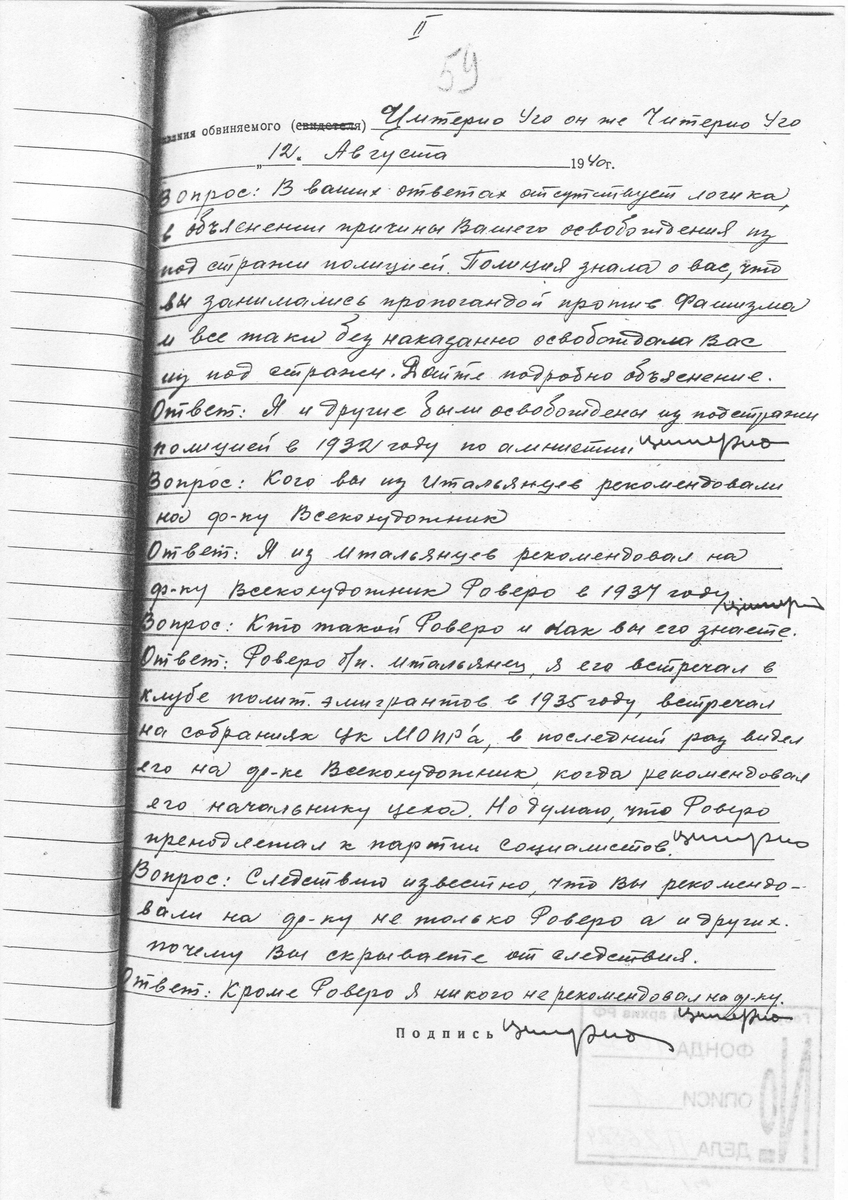 II
59
зания обвиняемого (свидетеля) Цитерио Уго он же Читерио Уго
„12„ Августа 1940г.
Вопрос: В ваших ответах отсутствует логика,
в объяснении причины Вашего освобождения из
под стражи полицией. Полиция знала о вас, что
вы занимались пропогандой против Фашизма
и все таки без наказанно освобождала Вас
из под стражи. Дайте подробно объяснение.
Ответ: Я и другие были освобождены из подстражи
полицией в 1932 году по амнистии Цитерио
Вопрос: Кого вы из Итальянцев рекомендовали
на ф-ку Всекохудожник
Ответ: Я из Итальянцев рекомендовал на
ф-ку Всекохудожник Роверо в 1937 году Цитерио
Вопрос: Кто такой Роверо и как вы его знаете.
Ответ: Роверо б/п. итальянец, я его встречал в
клубе полит. эмигрантов в 1935 году, встречал
на собраниях ЦК МОПРа, в последний раз видел
его на ф-ке Всекохудожник, когда рекомендовал
его начальнику цеха. Но думаю, что Роверо
преподлежал к партии социалистов. Цитерио
Вопрос: Следствию известно, что Вы рекомендо-
вали на ф-ку не только Роверо а и других.
почему Вы скрываете от следствия.
Ответ: Кроме Роверо я никого не рекомендовал на ф-ку.
Цитерио
Подпись Цитерио
архива РФ
ФОНДА
ОПИСИ
ДЕЛА
№